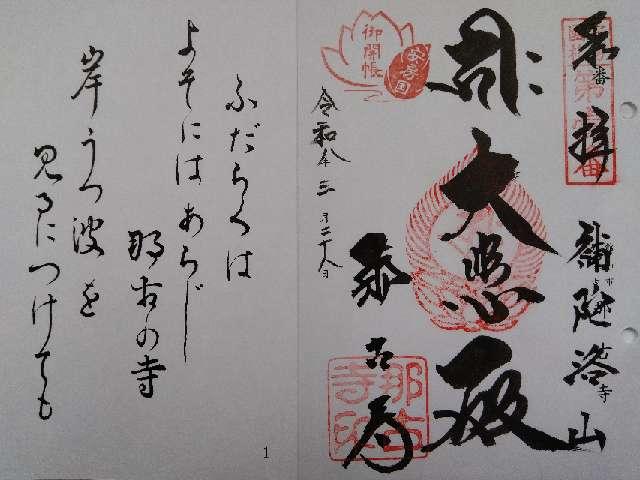 奉拝
補陀洛山
大悲殿
御開帳
安房国
令和八年三月二十八日
那古寺
那古寺印
ふだらくは
よそにはあらじ
那古の寺
岸うつ波を
見るにつけても
1